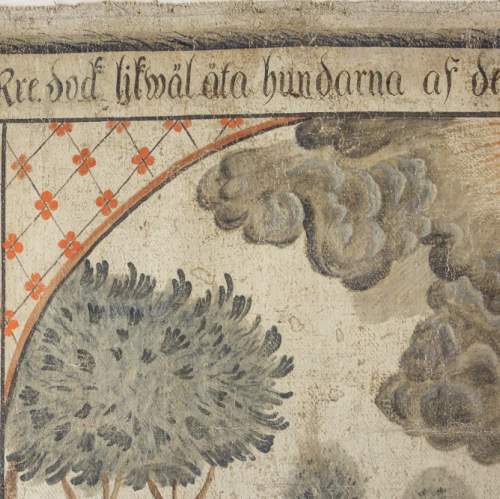 Rre. dock likwäl äta hundarna af de